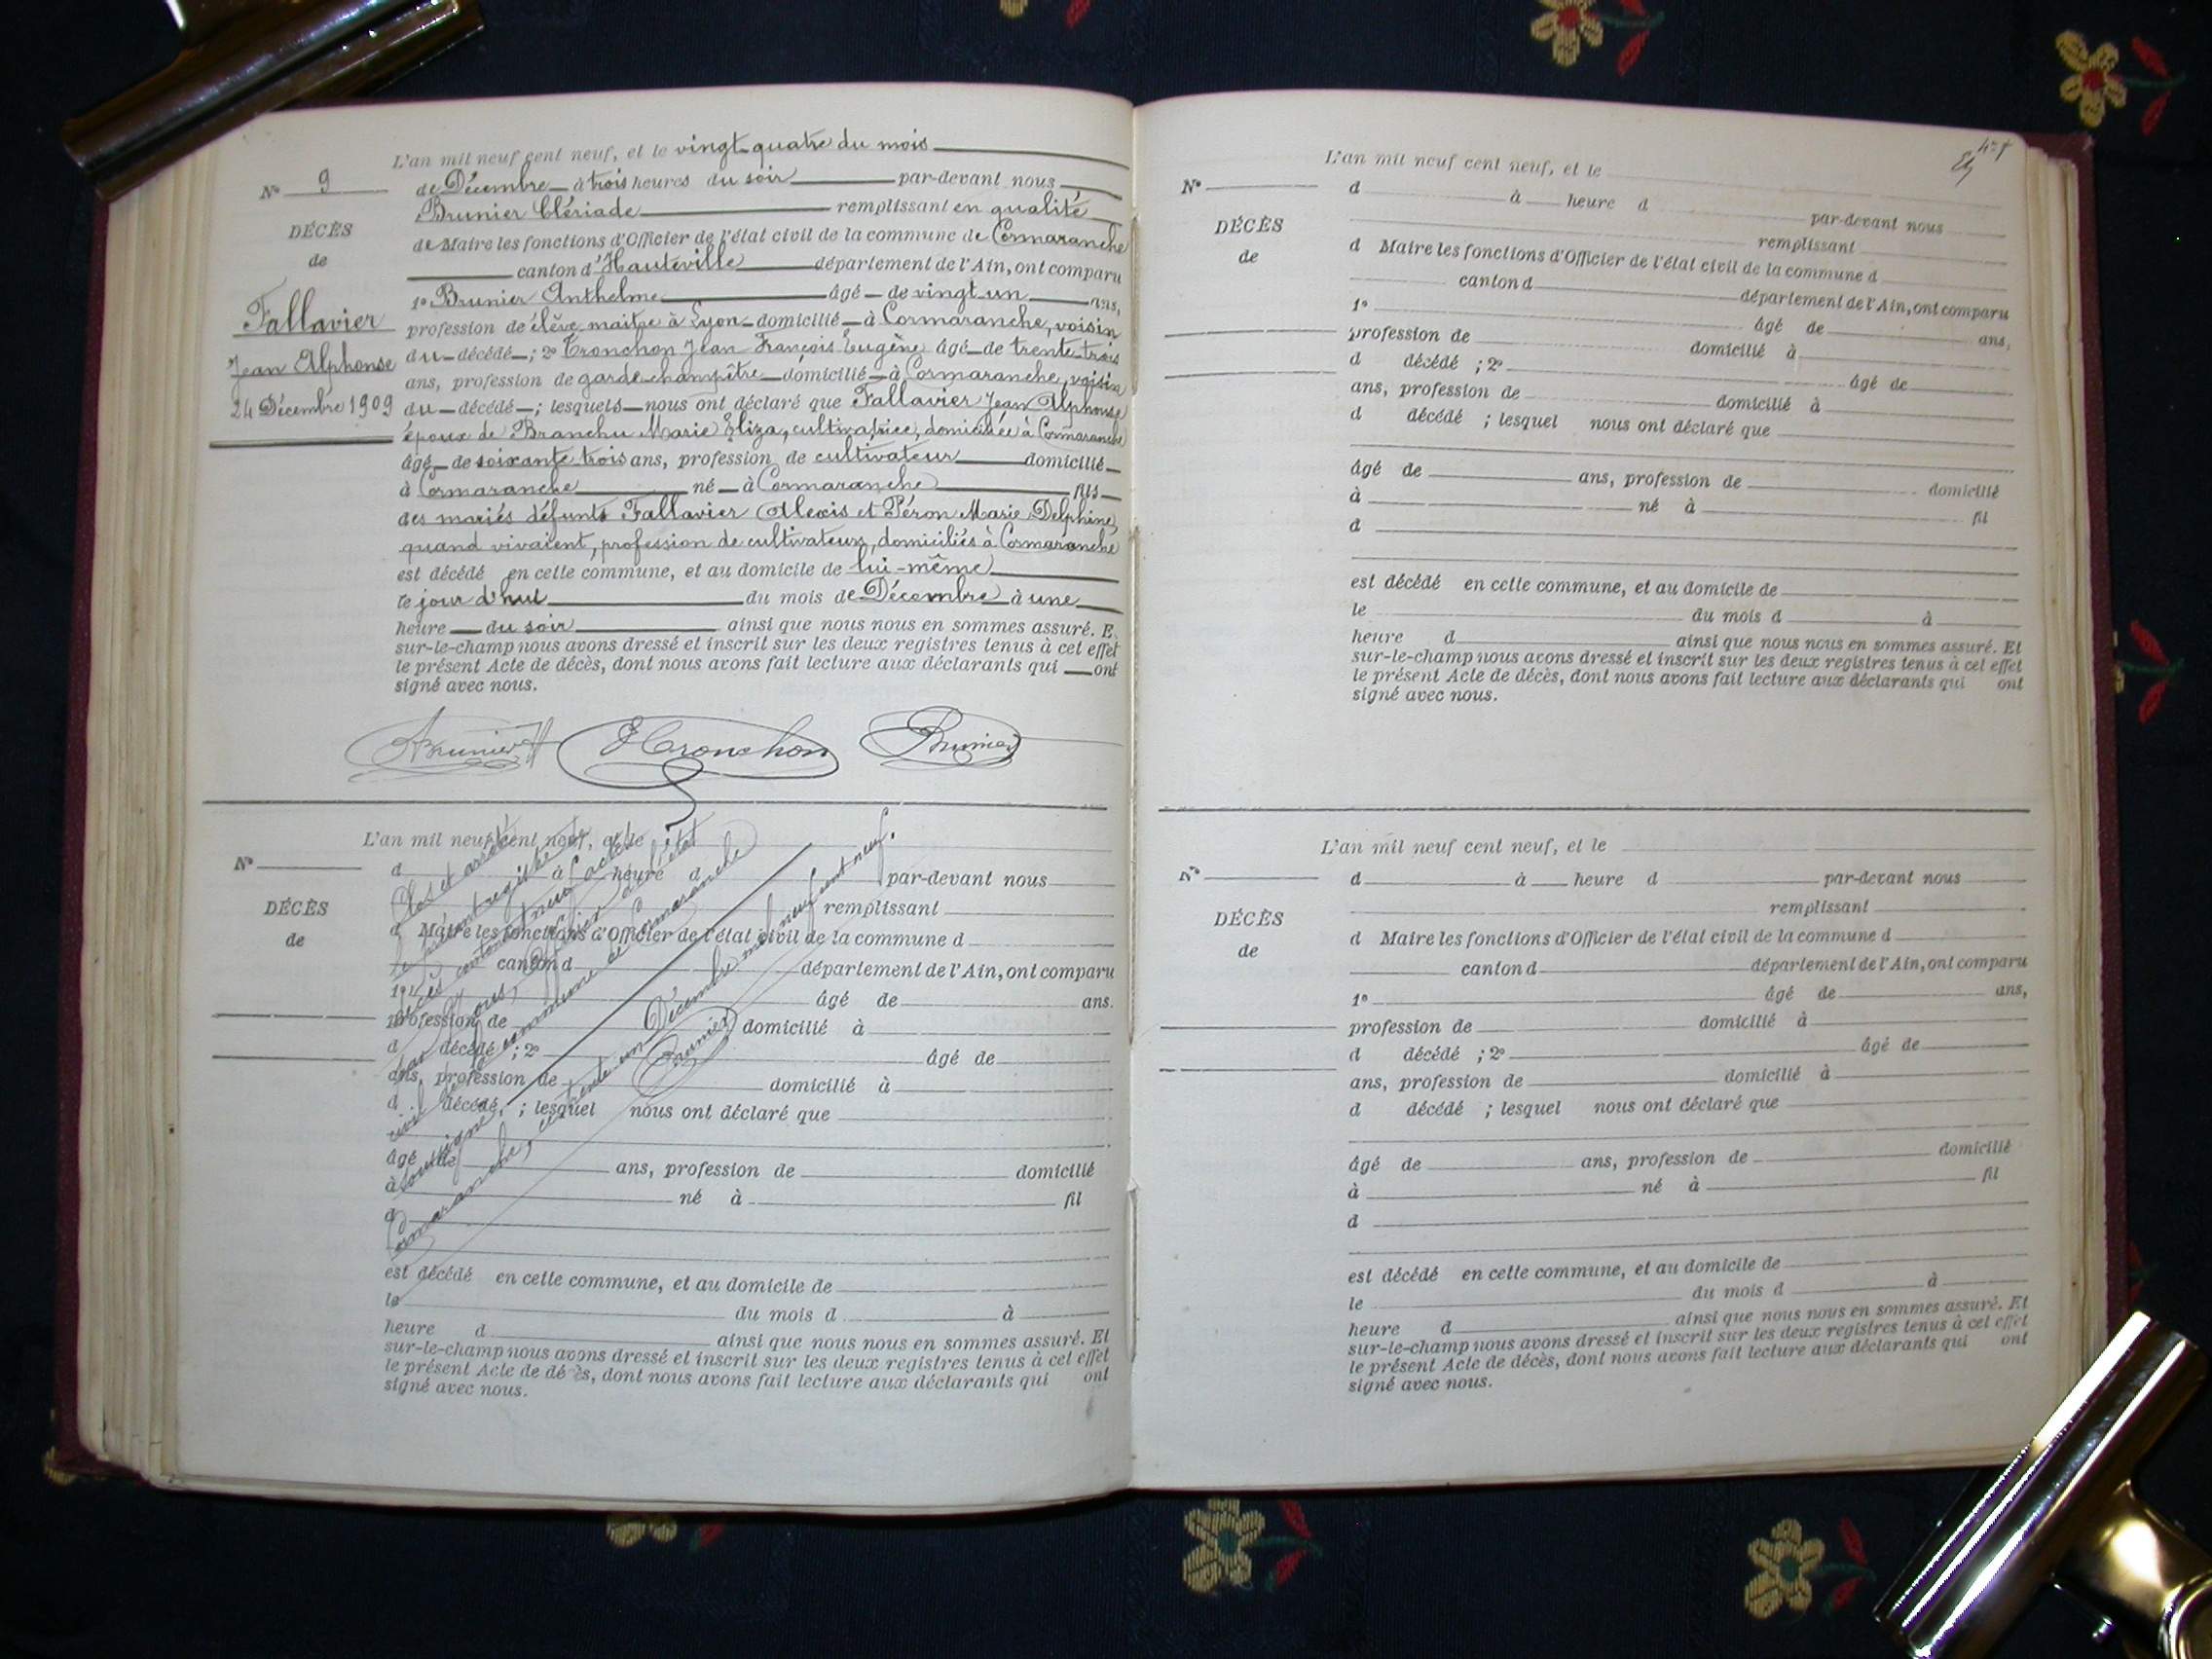 L'an mil neuf cent neuf, et le vingt-quatre du mois
N° 9
de Décembre à trois heures du soir par-devant nous
Brunier Clériade remplissant en qualité
DÉCÈS
de Maire les fonctions d'Officier de l'état civil de la commune de Cormaranche
de
canton d'Hauteville département de l'Ain, ont comparu
1° Brunier Anthelme âgé de vingt-un ans,
Fallavier
profession de élève maître à Lyon domicilié à Cormaranche, voisin
Jean Alphonse
du décédé ; 2° Tronchon Jean François Eugène âgé de trente-trois
ans, profession de garde-champêtre domicilié à Cormaranche, voisin
24 Décembre 1909
du décédé ; lesquels nous ont déclaré que Fallavier Jean Alphonse
époux de Branchu Marie Eliza, cultivatrice, domiciliée à Cormaranche
âgé de soixante-trois ans, profession de cultivateur domicilié
à Cormaranche né à Cormaranche fils
des mariés défunts Fallavier Alexis et Péron Marie Delphine,
quand vivaient, profession de cultivateurs, domiciliés à Cormaranche
est décédé en cette commune, et au domicile de lui-même
le jour d'hui du mois de Décembre à une
heure du soir ainsi que nous nous en sommes assuré. E
sur-le-champ nous avons dressé et inscrit sur les deux registres tenus à cet effet
le présent Acte de décès, dont nous avons fait lecture aux déclarants qui ont
signé avec nous.
ABrunier ETronchon Brunier
L'an mil neuf cent neuf, et le
N°
d à heure d par-devant nous
remplissant
DÉCÈS
d Maire les fonctions d'Officier de l'état civil de la commune d
de
canton d département de l'Ain, ont comparu
1° âgé de ans.
profession de domicilié à
d décédé ; 2° âgé de
ans, profession de domicilié à
d décédé ; lesquel nous ont déclaré que
âgé de ans, profession de domicilié
à né à fil
d
est décédé en cette commune, et au domicile de
le du mois d à
heure d ainsi que nous nous en sommes assuré. Et
sur-le-champ nous avons dressé et inscrit sur les deux registres tenus à cet effet
le présent Acte de décès, dont nous avons fait lecture aux déclarants qui ont
signé avec nous.
Clos et arrêté
le présent registre de
décès contenant neuf actes
par Nous, Officier de l'état
civil de la commune de Cormaranche
soussigné
Cormaranche, ce trente-un Décembre mil neuf cent neuf.
Brunier
L'an mil neuf cent neuf, et le
N°
d à heure d par-devant nous
remplissant
DÉCÈS
d Maire les fonctions d'Officier de l'état civil de la commune d
de
canton d département de l'Ain, ont comparu
1° âgé de ans,
profession de domicilié à
d décédé ; 2° âgé de
ans, profession de domicilié à
d décédé ; lesquel nous ont déclaré que
âgé de ans, profession de domicilié
à né à fil
d
est décédé en cette commune, et au domicile de
le du mois d à
heure d ainsi que nous nous en sommes assuré. Et
sur-le-champ nous avons dressé et inscrit sur les deux registres tenus à cet effet
le présent Acte de décès, dont nous avons fait lecture aux déclarants qui ont
signé avec nous.
L'an mil neuf cent neuf, et le
N°
d à heure d par-devant nous
remplissant
DÉCÈS
d Maire les fonctions d'Officier de l'état civil de la commune d
de
canton d département de l'Ain, ont comparu
1° âgé de ans,
profession de domicilié à
d décédé ; 2° âgé de
ans, profession de domicilié à
d décédé ; lesquel nous ont déclaré que
âgé de ans, profession de domicilié
à né à fil
d
est décédé en cette commune, et au domicile de
le du mois d à
heure d ainsi que nous nous en sommes assuré. Et
sur-le-champ nous avons dressé et inscrit sur les deux registres tenus à cet effet
le présent Acte de décès, dont nous avons fait lecture aux déclarants qui ont
signé avec nous.